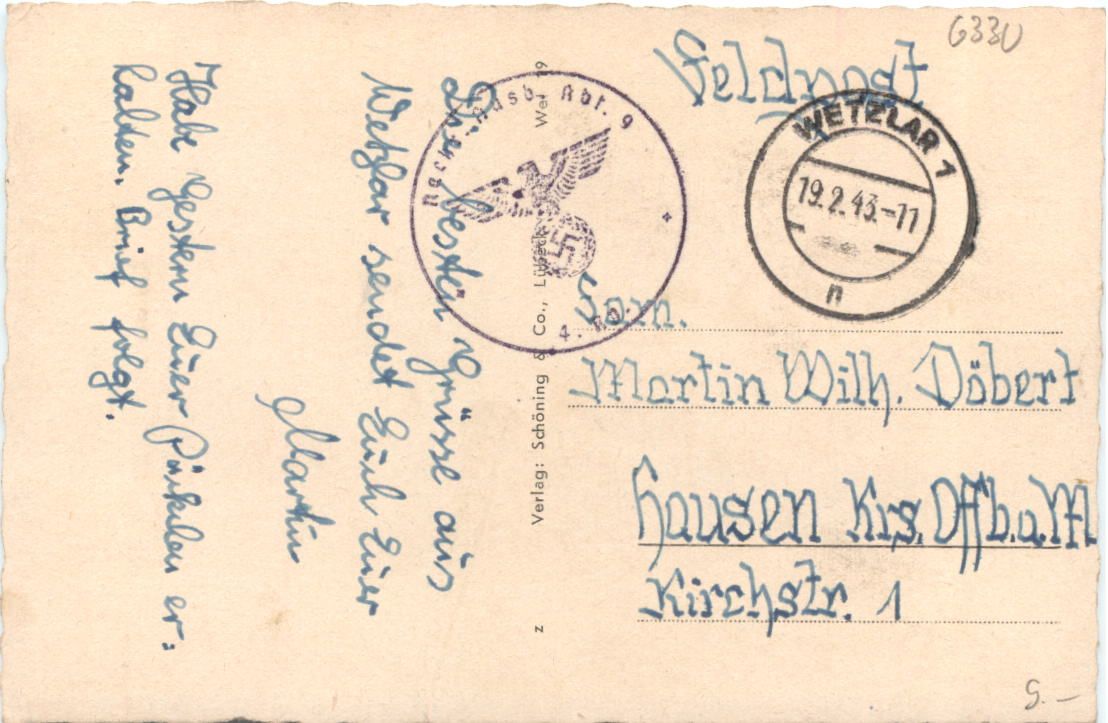 6330
Feldpost
WETZLAR 1
19.2.43.-11
n
Nachr. Ausb. Abt. 9
4.
Die besten Grüsse aus
Wetzlar sendet Euch Euer
Martin
Habe Gestern Euer Päckchen er-
halten. Brief folgt.
Verlag: Schöning & Co., Lübeck
Wer 19
z
Fam.
Martin Wilh. Döbert
Hausen Krs. Offb.a.M
Kirchstr. 1
S.-